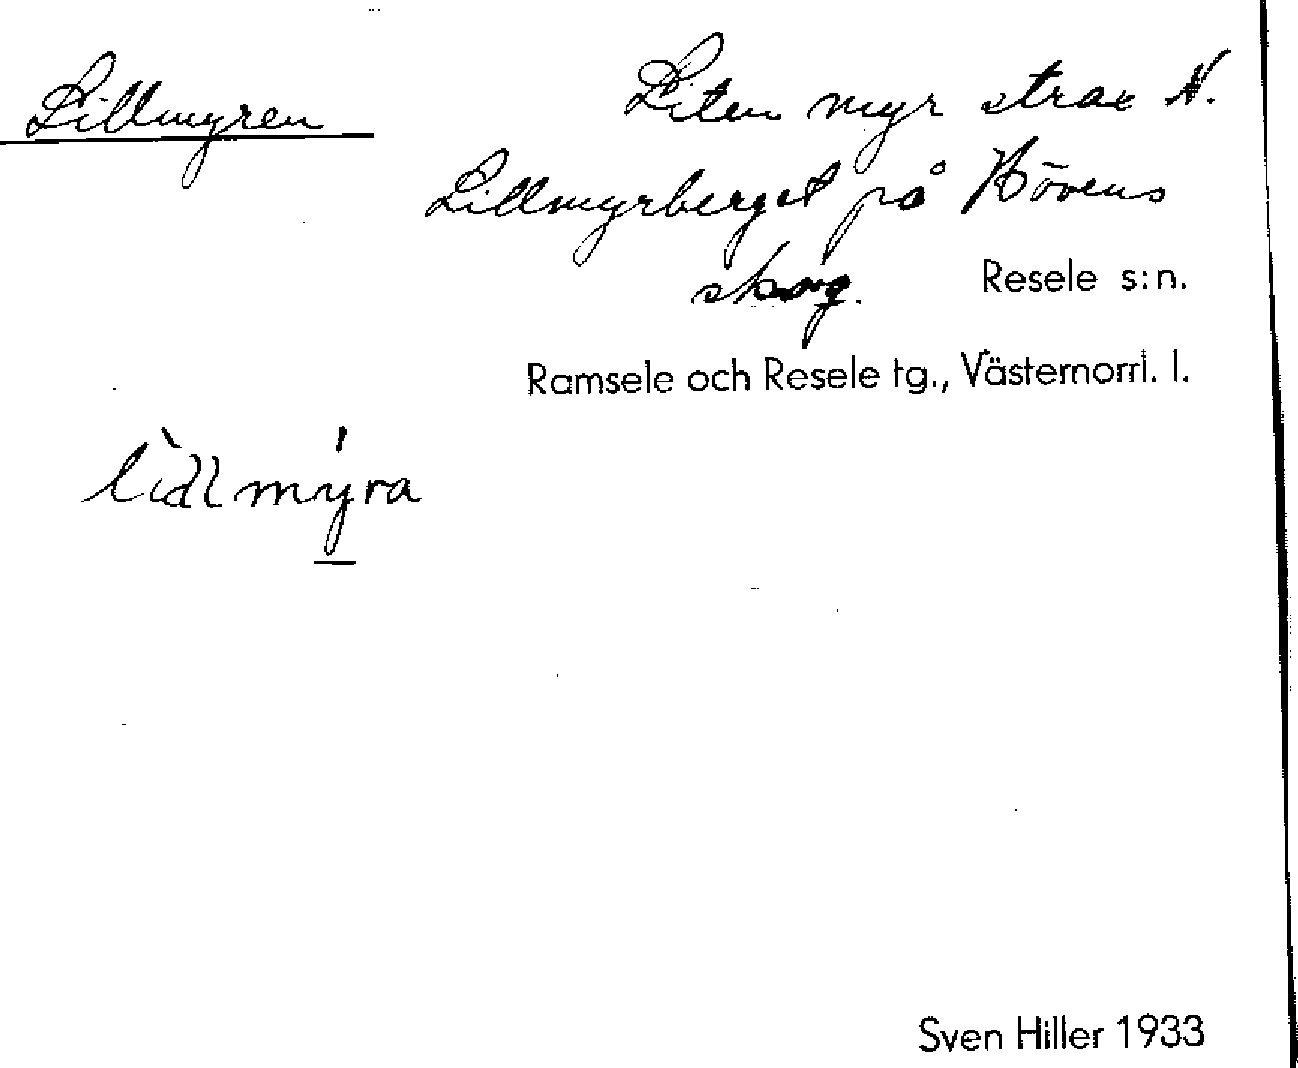 Lillmyren
Liten myr strax N.
Lillmyrberget på Hövens
skog.
Resele s:n.
Ramsele och Resele tg., Västernorrl. l.
lìdlmy̱ra
Sven Hiller 1933